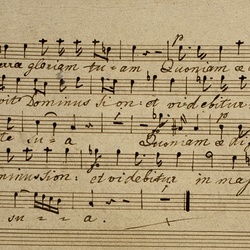 rra gloriam tu=am Quoniam æ
oit Dominus si on: et videbitur
te su=a Quoniam æ di
minus sion: et videbitur in maj
su=::a.